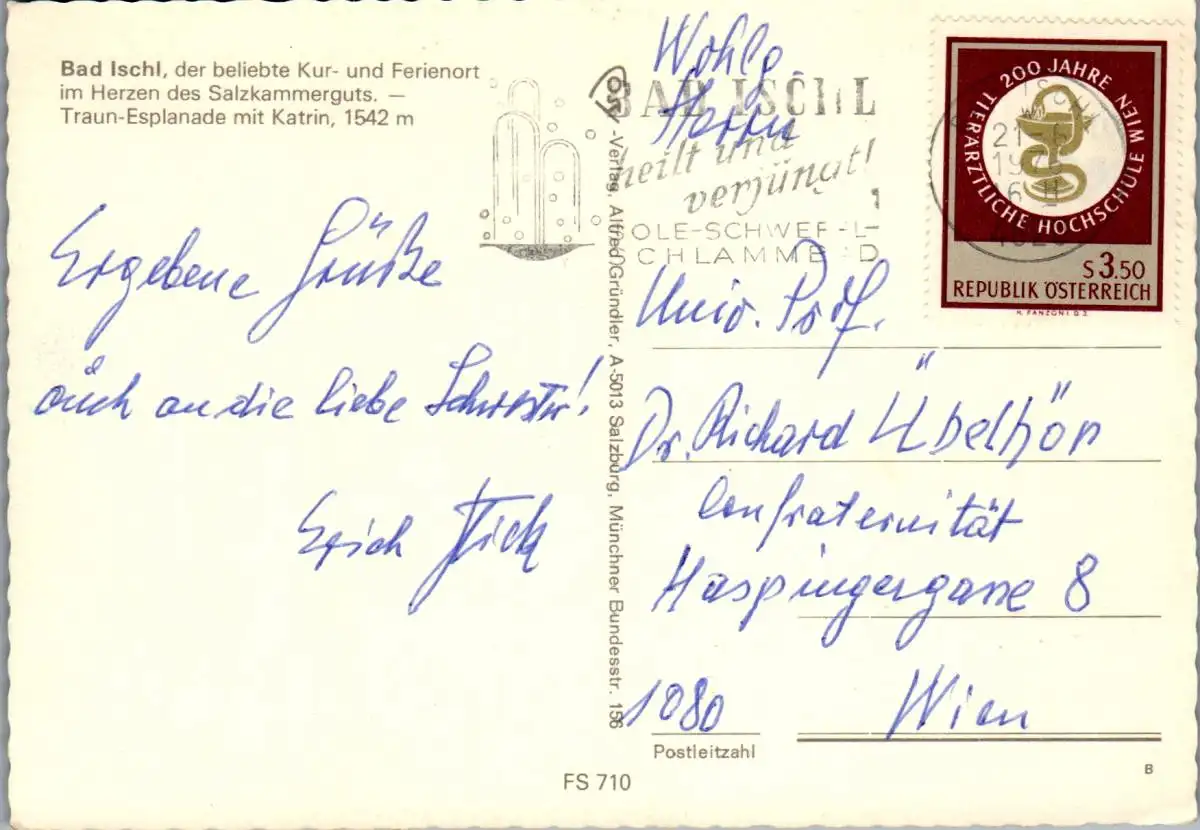 Bad Ischl, der beliebte Kur- und Ferienort
im Herzen des Salzkammerguts. —
Traun-Esplanade mit Katrin, 1542 m
Ergebene Grüße
auch an die liebe Schwester!
Erich
BAD ISCHL
heilt und
verjüngt!
OLE-SCHWEF-L-
CHLAMME D
-Verlag, Alfred Gründler, A-5013 Salzburg, Münchner Bundesstr. 156
200 JAHRE
TIERÄRZTLICHE HOCHSCHULE WIEN
S 3.50
REPUBLIK ÖSTERREICH
H. FANZONI D.J.
Wohlg
Herrn
Univ. Prof.
Dr. Richard Übelhör
Confraternität
Haspingergasse 8
1080 Wien
Postleitzahl
FS 710
B